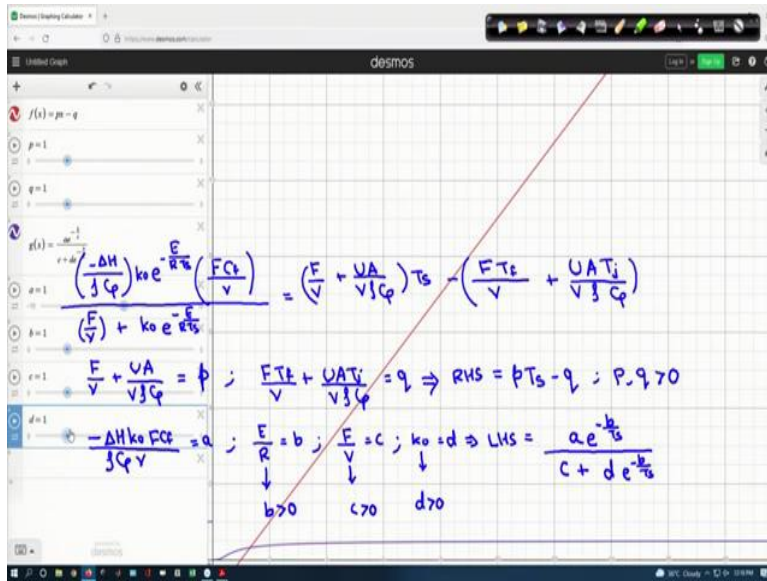 Desmos | Graphing Calculator
Untitled Graph
desmos
Log In
or
Sign Up
f(x) = px − q
p = 1
q = 1
g(x) = ae^{-b/x} / (c + de^{-b/x})
a = 1
b = 1
c = 1
d = 1
(-ΔH/ρCp) k0 e^{-E/RTs} (FCf/V) / ((F/V) + k0 e^{-E/RTs}) = (F/V + UA/VρCp) Ts − (FTf/V + UATj/VρCp)
F/V + UA/VρCp = p ; FTf/V + UATj/VρCp = q ⇒ RHS = pTs − q ; P, q > 0
-ΔH k0 FCf/ρCp V = a ; E/R = b ; F/V = c ; k0 = d ⇒ LHS = ae^{-b/Ts} / (c + de^{-b/Ts})
↓ ↓ ↓
b>0 c>0 d>0
powered by
desmos